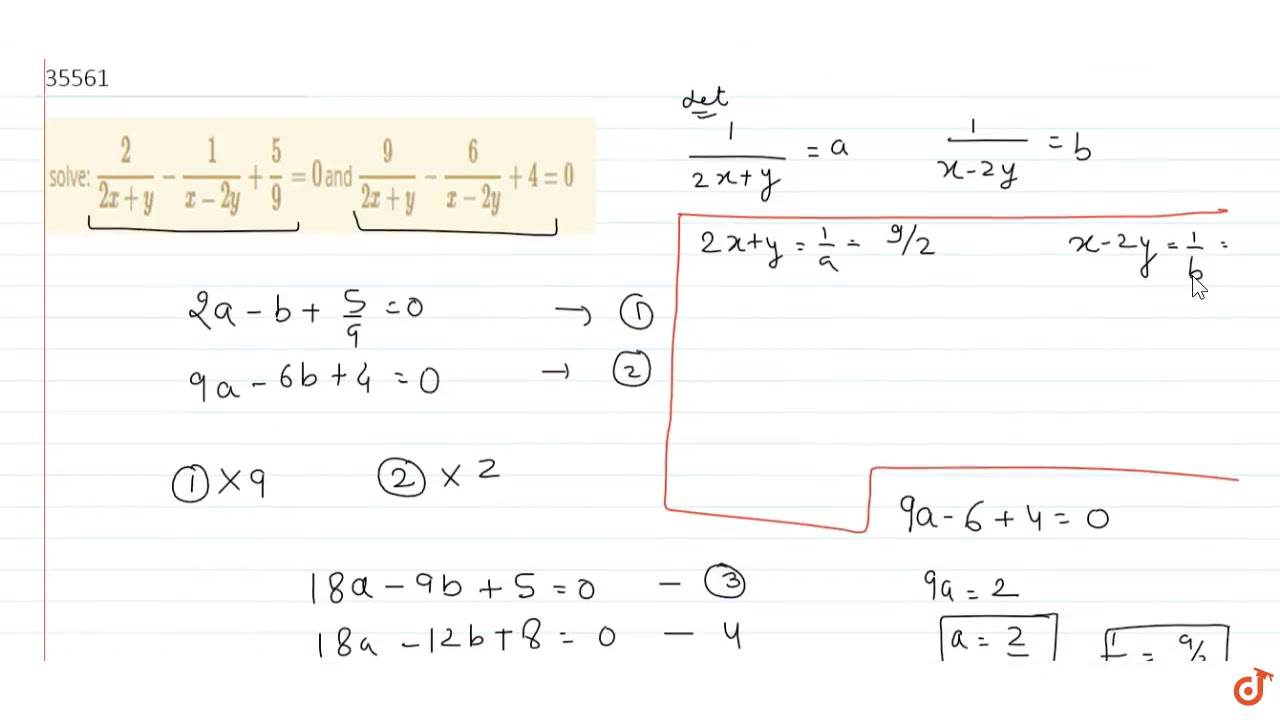 35561
solve: 2/(2x+y) − 1/(x−2y) + 5/9 = 0 and 9/(2x+y) − 6/(x−2y) + 4 = 0
let
1/(2x+y) = a
1/(x-2y) = b
2x+y = 1/a = 9/2
x-2y = 1/b =
2a - b + 5/9 = 0 → ①
9a - 6b + 4 = 0 → ②
① × 9 ② × 2
18a - 9b + 5 = 0 - ③
18a - 12b + 8 = 0 - 4
9a - 6 + 4 = 0
9a = 2
a = 2
= 9/2